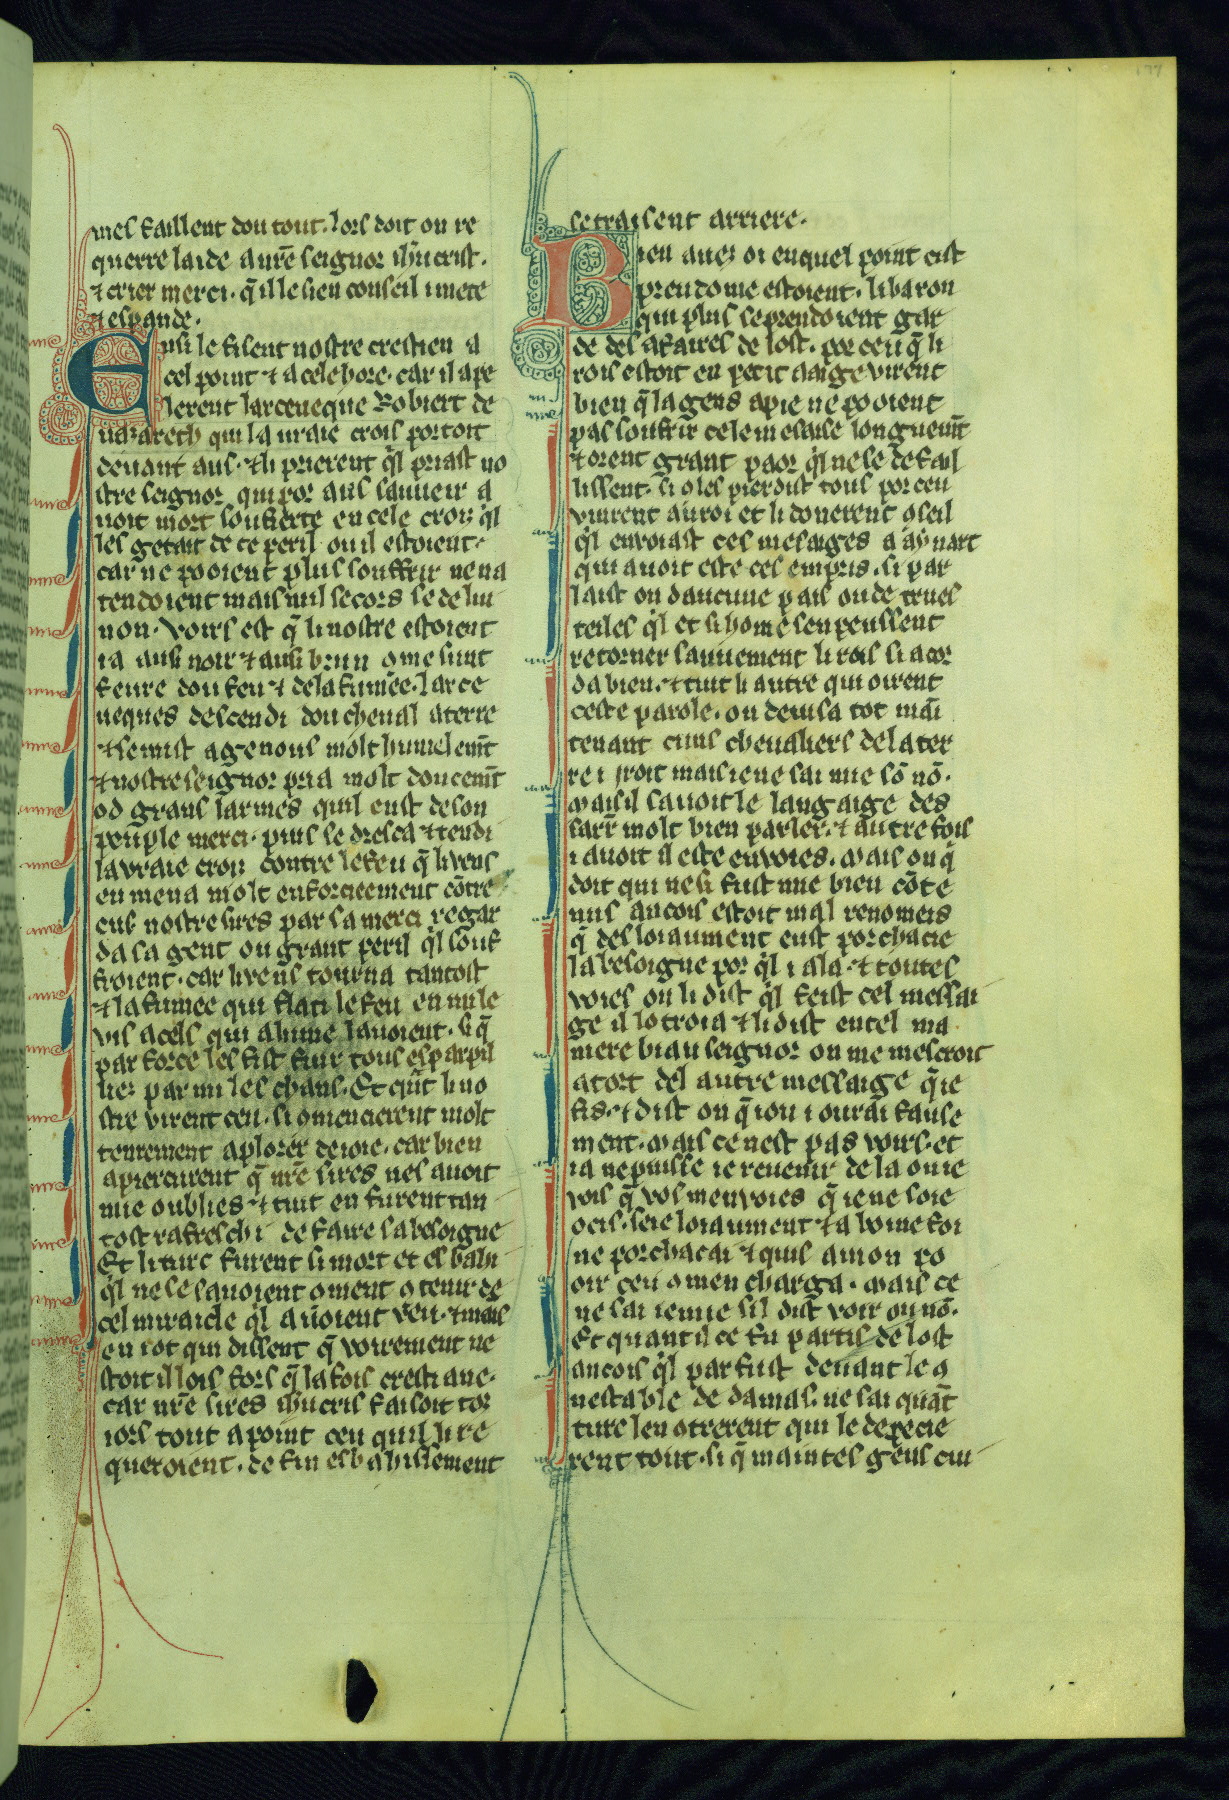 mes faillent dou tout. lors doit on re
querre laide a nr̄e seignor ih̄u crist.
⁊ crier merci. q̄ il le sien conseil i mete
⁊ espande.
Ensi le fisent nostre crestien a
cel point ⁊ a cele hore. car il ape
lerent larceueque Robiert de
nazareth qui la uraie crois portoit
deuant aus. ⁊ li prierent q̄l priast no
stre seignor qui por aus sauueir a
uoit mort soufferte en cele croiz q̄l
les getast de ce peril ou il estoient.
car ne pooient plus souffrir ne na
tendoient mais nul secors se de lui
non. voirs est q̄ li nostre estoient
ia ausi noir ⁊ ausi brun ꝯme sunt
feure dou feu ⁊ de la fumee. larce
ueques descendi dou cheual a terre
⁊ se mist a genous molt humelem̄t
⁊ nostre seignor pria molt doucem̄t
od grans larmes quil eust de son
peuple merci. puis se dresca ⁊ tendi
la vraie croiz contre le feu q̄ li vens
en mena molt enforcieement cōtre
eus nostre sires par sa merci regar
da sa gent ou grant peril q̄l souf
froient. car li vens tourna tantost
⁊ la fumee qui flati le feu en mi le
vis a cels qui alume lauoient. si q̄
par force les fist fuir tous esparpil
liez par mi les chans. Et quāt li no
stre virent ceu. si ꝯmencierent molt
tenrement a plorer de ioie. car bien
apiercurent q̄ nr̄e sires nes auoit
mie oublies ⁊ tuit en furent tan
tost rafreschi de faire sa besoigne
Et li turc furent si mort et esbahi
q̄l ne se sauoient ꝯment ꝯtenir de
cel miraicle q̄l auoient veu. ⁊ mais
en i ot qui dissent q̄ voirement ne
stoit il lois fors q̄ la fois crestiane.
car nr̄e sires ih̄ucris faisoit tos
iors tout a point ceu quil li re
queroient. de fin esbahissement
se traisent arriere.
Bien auez oi en quel point cist
preudome estoient. li baron
qui plus se prendoient gar
de des afaires de lost. por ceu q̄ li
rois estoit en petit aaige virent
bien q̄ la gens a pie ne pooient
pas souffrir cele mesaise longuem̄t
⁊ orent grant paor q̄l ne se defail
lissent. si ꝯ les pierdist tous por ceu
vinrent au roi et li donerent ꝯseil
q̄l enuoiast ces mesaiges a aynart
qui auoit este ces empris. si par
laist on daucune pais ou de trues
teiles q̄l et si home sen peussent
retorner sauuement li rois si acor
da bien. ⁊ tuit li autre qui oirent
ceste parole. on deuisa tot mai
tenant cuns cheualiers de la ter
re i iroit mais ie ne sai mie sō nō.
mais il sauoit le langaige des
sarr̄ molt bien parler. ⁊ autre fois
i auoit il este enuoies. mais ou q̄
doit qui ne si fust mie bien cōte
nus ancois estoit mal renomeis
q̄ desloiaument eust porchacie
la besoigne por q̄l i ala. ⁊ toutes
voies on li dist q̄l feist cel messai
ge il lotroia ⁊ li dist en tel ma
niere biau seignor on me mescroit
a tort del autre messaige q̄ ie
fis. ⁊ dist on q̄ iou i ourai fause
ment. mais ce nest pas voirs. et
ia ne puisse ie reuenir de la ou ie
vois q̄ vos menuoies q̄ ie ne soie
ocis. se ie loiaument ⁊ a boine foi
ne porchacai ⁊ quis a mon po
oir ceu ꝯ men charga. mais ce
ne sai ie mie sil dist voir ou nō.
Et quant il ce fu partis de lost
ancois q̄l par fust deuant le ꝯ
nestable de damas. ne sai quāt
turc len ꝯtrerent qui le depecie
rent tout. si q̄ maintes gens cui